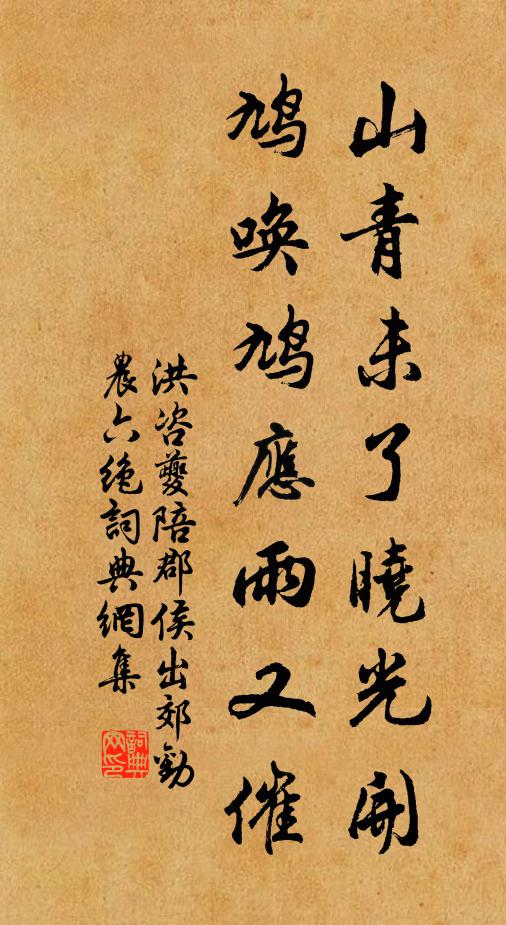 山青未了曉光開
鳩喚鳩應雨又催
洪咨夔陪郡侯出郊勸
農六絕詞典網集
詞典網印